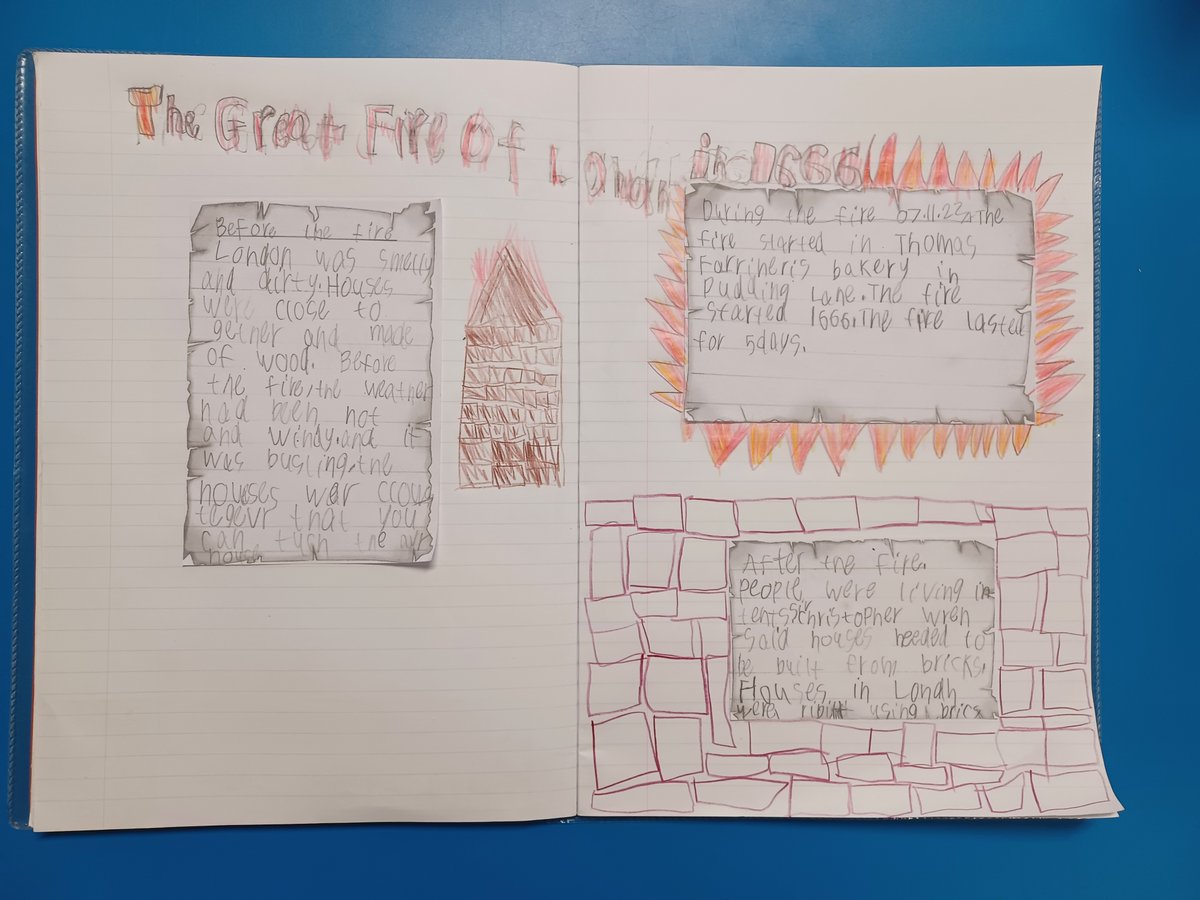 The Great Fire Of London in 1666
Before the fire
London was smelly
and dirty. Houses
were close to
gether and made
of wood. Before
the fire, the weather
had been hot
and windy. and it
was busling, the
houses war
that you
can the
house
During the fire 07.11.23 The
fire started in Thomas
Farriner's bakery in
Pudding Lane. The fire
started 1666. The fire lasted
for 5days.
After the fire.
People were living in
tents Christopher Wren
said houses needed to
be built from bricks.
Houses in Londn
were using brics